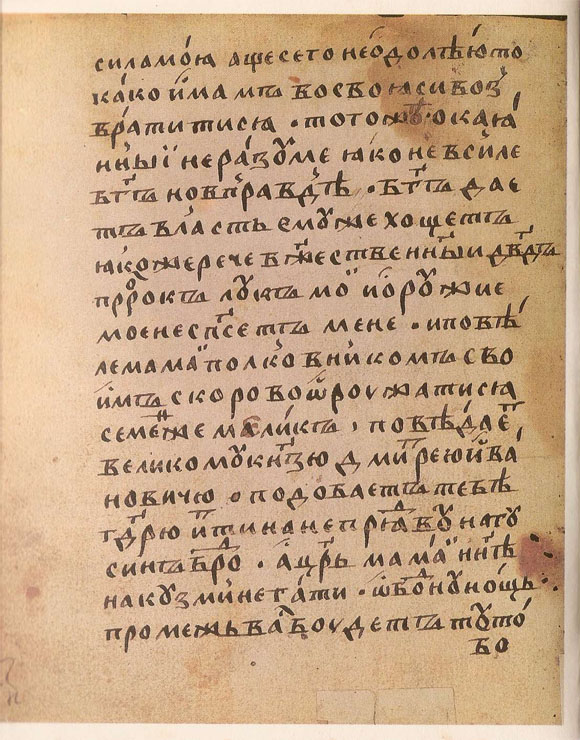 сила моꙗ аще сего неодолѣю то
како имамъ восвоꙗси воз
вратитисѧ · тотож҃ѣ · окаꙗ
нныї неразꙋме ꙗко не всиле
бг҃ъ новправдѣ · бг҃ъ дае
тъ власть емꙋже хощетъ
ꙗкоже рече бж҃ественныи дв҃дъ
прⷪ҇рокъ лꙋкъ моⷤ и орꙋжие
мое неспⷭ҇етъ мене · и повѣ
ле мамаⷤ полковникомъ сво
имъ скоро воѡроужатисѧ
семенⷤже меликъ · повѣдаеⷮ
великомꙋ кн҃зю дмиⷮрею ива
новичю · подобаетъ тебѣ
гдⷭ҇рю итⷮи на непрⷶдвꙋ на гꙋ
синъ броⷣ · а цр҃ь мамаⷤ нн҃ѣ
на кузмине гати · ѡбⷣонꙋ нощь
промежь ваⷭ҇ боудетъ тꙋто
бо